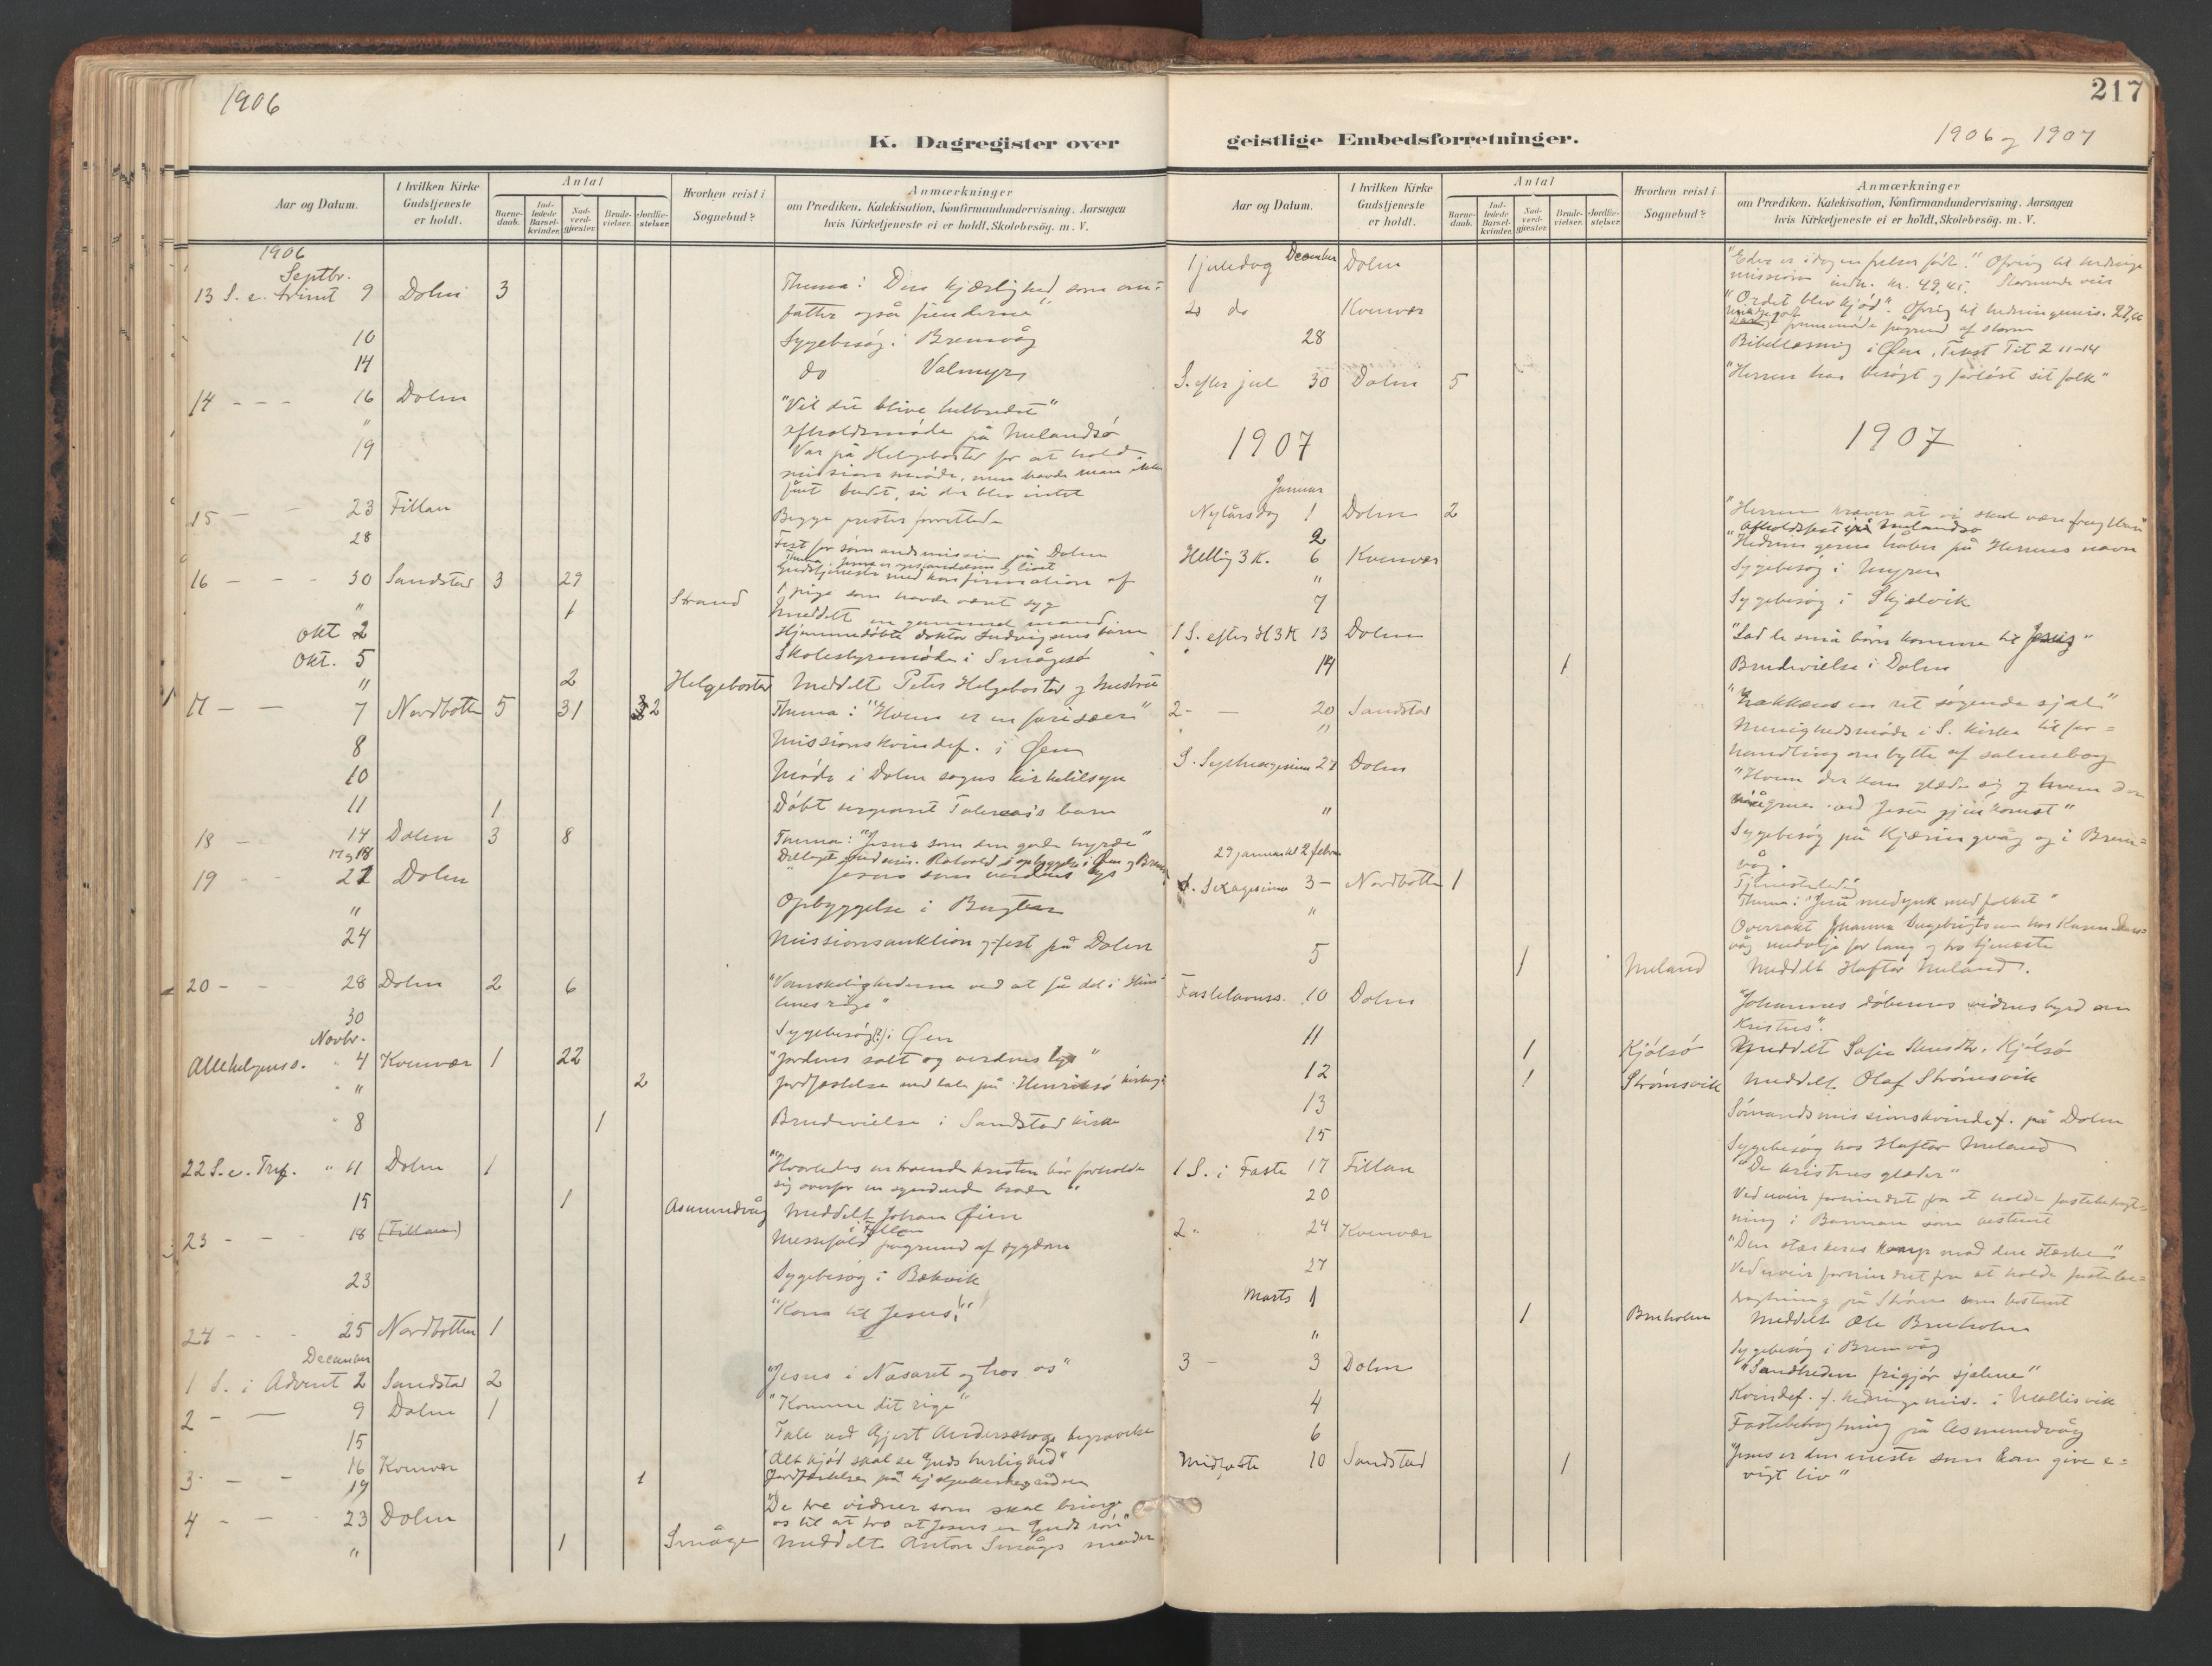 1906
K. Dagregister over
Aar og Datum.
I hvilken Kirke Gudstjeneste er holdt.
Antal
Barne-daab.
Ind-ledede Barsel-kvinder.
Nad-verd-gjester.
Brude-vielser.
Jordfæ-stelser.
Hvorhen reist i Sognebud?
Anmærkninger
om Prædiken, Katekisation, Konfirmandundervisning. Aarsagen
hvis Kirketjeneste ei er holdt, Skolebesög. m. V.
1906
Septbr.
13 S. e. trinit 9 Dolm 3 Thema: Den kjærlighed som om-
fatter også fienderne"
10 Sygebesøg i Bremvåg
14 do Valmyra
14 - - - 16 Dolm "Vil du blive helbredet"
" afholdsmøde på Melandsø
19 Var på Helgebostad for at holde
missionsmøde, men havde man ikke
fået budet, så der blev intet
15 - - 23 Fillan Begge prester forrettede
28 Fest for sømandsmission på Dolm
Thema: Jesus er opstandelsen og livet
16 - - - 30 Sandstad 3 29 Gudstjeneste med konfirmation af
1 pige som havde været syg
" 1 Strand Meddelt en gammel mand
Okt 2 Hjemmedøbte doktor Ludvigsens barn
Okt. 5 Skolestyremøde i Smågesø
" 2 Helgebostad Meddelt Peter Helgebostad og hustru
17 - - 7 Nordbotten 5 31 2 Thema: "Hvem er en farisæer"
8 Missionskvindef. i Øen
10 Møde i Dolm sogns kirketilsyn
11 1 Døbt sergeant barn
18 - 14 Dolm 3 8 Thema: "Jesus som den gode hyrde"
17 og 18
19 - - 21 Dolm Jesus som verdens lys
" Opbyggelse i Bugten
24 Missionsauktion og -fest på Dolm
20 - - 28 Dolm 2 6 "Vanskelighederne ved at få del i Him-
lenes rige"
30 Sygebesøg (2) i Øen
Novbr.
Allehelgens. " 4 Kvenvær 1 22 "Jordens salt og verdens lys"
" " 2 Jordfæstelse med tale på Henriksø kirkeg.
" 8 1 Brudevielse i Sandstad kirke
22 S. e. Tref. " 11 Dolm 1 "Hvorledes en troende kristen bør forholde
sig overfor en syndende broder"
15 1 Asmundvåg Meddelt Johan Øien
23 - - - 18 (Fillan) Messefald i Fillan pågrund af sygdom
23 Sygebesøg i Bekvik
24 - - - 25 Nordbotten 1 "Kom til Jesus!"
December
1 S. i Advent 2 Sandstad 2 "Jesus i Nasaret og hos os"
2 - - 9 Dolm 1 "Komme dit rige"
15 Tale ved Gjert Anderskogs begravelse
3 - - 16 Kvenvær "Alt kjød skal se Guds herlighed"
19 1 Jordfæstelse på
4 - - - 23 Dolm "De tre vidner som skal bringe
os til at tro at Jesus er Guds søn"
" 1 Småge Meddelt Anton Småges moder
217
geistlige Embedsforretninger.
1906 og 1907
Aar og Datum.
I hvilken Kirke Gudstjeneste er holdt.
Antal
Barne-daab.
Ind-ledede Barsel-kvinder.
Nad-verd-gjester.
Brude-vielser.
Jordfæ-stelser.
Hvorhen reist i Sognebud?
Anmærkninger
om Prædiken, Katekisation, Konfirmandundervisning. Aarsagen
hvis Kirketjeneste ei er holdt, Skolebesög. m. V.
1 juledag December Dolm "Eder er idag en frelser født." Ofring til hedninge
mission indk. kr. 49,45. Stormende veir
2 do Kvenvær "Ordet blev kjød". Ofring til hedningemis.
fremmøde pågrund af storm
28 Bibellæsning i Øen, Tekst Tit 2 11-14
S. efter jul 30 Dolm 5 "Herren har besøgt og forløst sit folk"
1907
1907
Januar
Nytårsdag 1 Dolm 2 "Herren kræver at vi skal være
2 Afholdsfest på Melandsø
Hellig 3 K. 6 Kvenvær "Hedningerne håber på Herrens navn
" Sygebesøg i Myren
7 Sygebesøg i Skjælvik
1 S. efter H3K 13 Dolm "Lad de små børn komme til Jesus"
14 1 Brudevielse i Dolm
2 - - 20 Sandstad "Zakkæus en ret søgende sjæl"
" Menighedsmøde i S. kirke til for-
handling om bytte af salmebog
S. Septuagesima 27 Dolm "Hvem der kan glæde sig og hvem der
må grue ved Jesu gjenkomst"
" Sygebesøg på Kjæringvåg og i Brem-
våg.
29 januar til 2 februar Tjenesteledig
S. Sexagesima 3 - Nordbotten 1 Thema: "Jesu medynk med folket"
" Overrakt Johanna Ingebrigtsen hos Karen
våg medalje for lang og tro tjeneste
5 1 Meland Meddelt Haftor Meland.
Fastelavnss. 10 Dolm "Johannes døberens vidnesbyrd om
Kristus".
11 1 Kjølsø Meddelt Sofie Kjølsø
12 1 Strømsvik Meddelt Olaf Strømsvik
13 Sømandsmissionskvindef. på Dolm
15 Sygebesøg hos Haftor Meland
1 S. i Faste 17 Fillan "De kristnes glæder"
20 Ved uveir forhindret fra at holde fastebetragt-
ning i Barman som bestemt
2 " " 24 Kvenvær "Den stærkeres kamp mod den stærke"
27 Ved uveir forhindret fra at holde fastebe-
tragtning på Strøm som bestemt
Marts 1 1 Bruholm Meddelt Ole Bruholm
" Sygebesøg i Bremvåg
3 - 3 Dolm "Sandheden frigjør sjælene"
4 Kvindef. f. hedningemis. i Mællisvik
6 Fastebetragtning på Asmundvåg
Midfaste 10 Sandstad 1 "Jesus er den eneste som kan give e-
vigt liv"